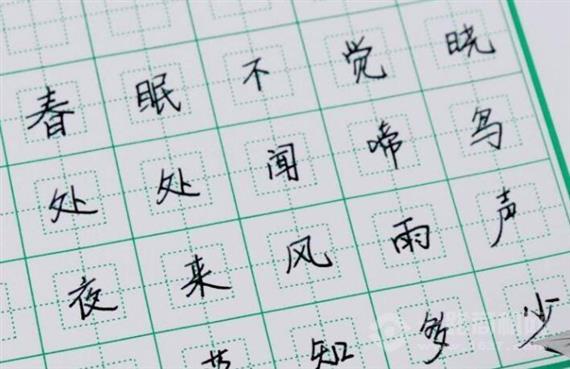 春眠不觉晓
处处闻啼鸟
夜来风雨声
知多少